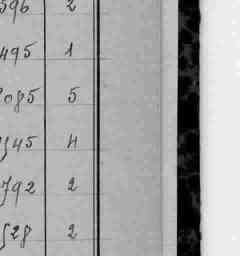 396 2
495 1
2085 5
1345 4
792 2
528 2